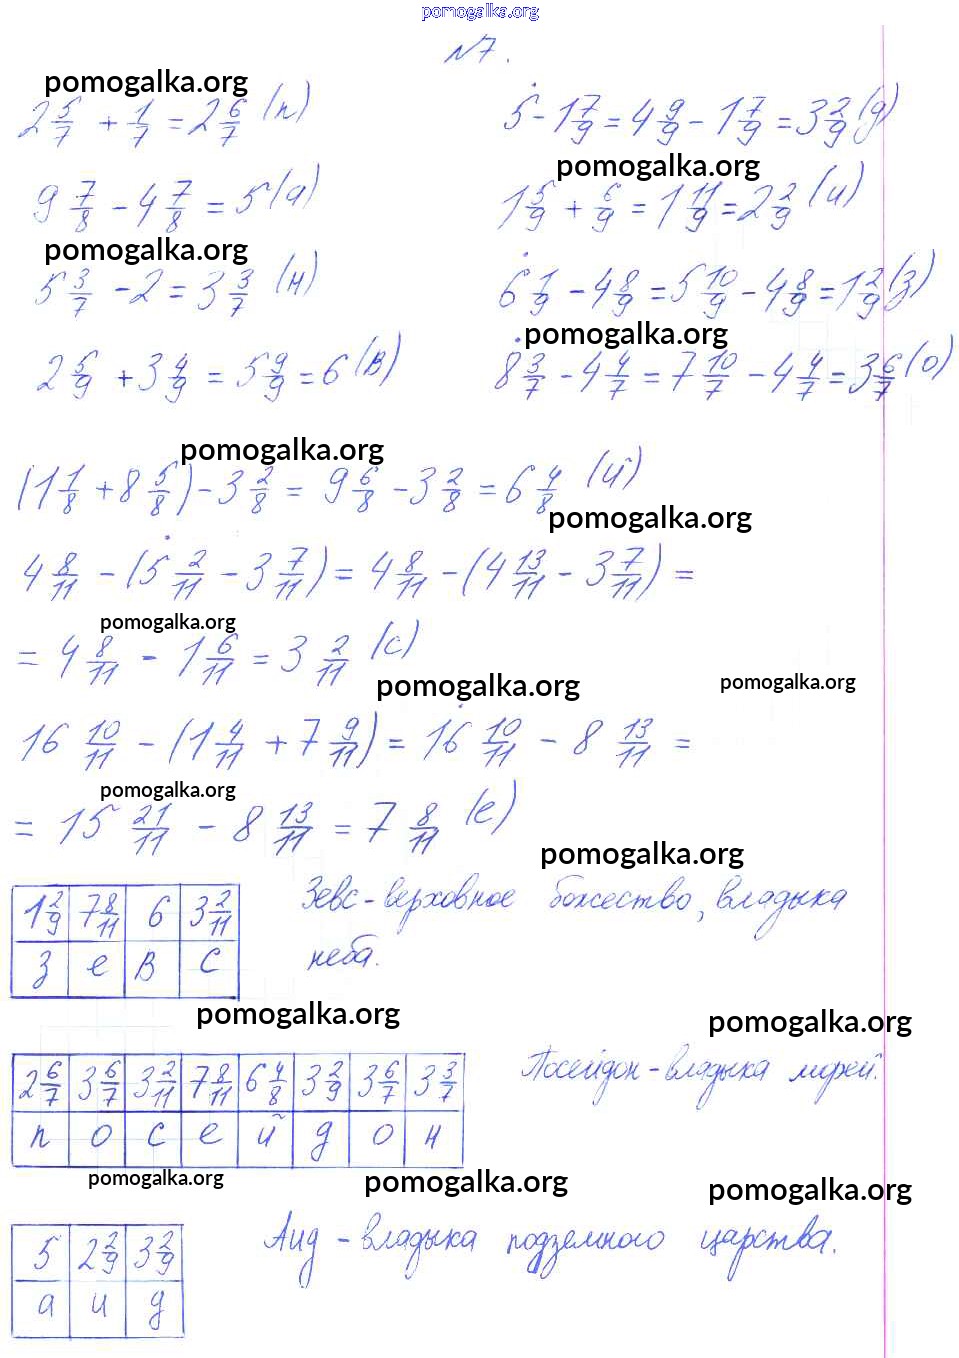 pomogalka.org
№7.
pomogalka.org
2 5/7 + 1/7 = 2 6/7 (п)
5 - 1 7/9 = 4 9/9 - 1 7/9 = 3 2/9 (д)
pomogalka.org
9 7/8 - 4 7/8 = 5 (а)
1 5/9 + 6/9 = 1 11/9 = 2 2/9 (и)
pomogalka.org
5 3/7 - 2 = 3 3/7 (н)
6 1/9 - 4 8/9 = 5 10/9 - 4 8/9 = 1 2/9 (з)
pomogalka.org
2 5/9 + 3 4/9 = 5 9/9 = 6 (в)
8 3/7 - 4 4/7 = 7 10/7 - 4 4/7 = 3 6/7 (о)
pomogalka.org
(1 1/8 + 8 5/8) - 3 2/8 = 9 6/8 - 3 2/8 = 6 4/8 (й)
pomogalka.org
4 8/11 - (5 2/11 - 3 7/11) = 4 8/11 - (4 13/11 - 3 7/11) =
pomogalka.org
= 4 8/11 - 1 6/11 = 3 2/11 (с)
pomogalka.org
pomogalka.org
16 10/11 - (1 4/11 + 7 9/11) = 16 10/11 - 8 13/11 =
pomogalka.org
= 15 21/11 - 8 13/11 = 7 8/11 (е)
pomogalka.org
1 2/9 7 8/11 6 3 2/11
з е в с
Зевс - верховное божество, владыка
неба.
pomogalka.org
pomogalka.org
2 6/7 3 6/7 3 2/11 7 8/11 6 4/8 3 2/9 3 6/7 3 3/7
п о с е й д о н
Посейдон - владыка морей.
pomogalka.org
pomogalka.org
pomogalka.org
5 2 2/9 3 2/9
а и д
Аид - владыка подземного царства.